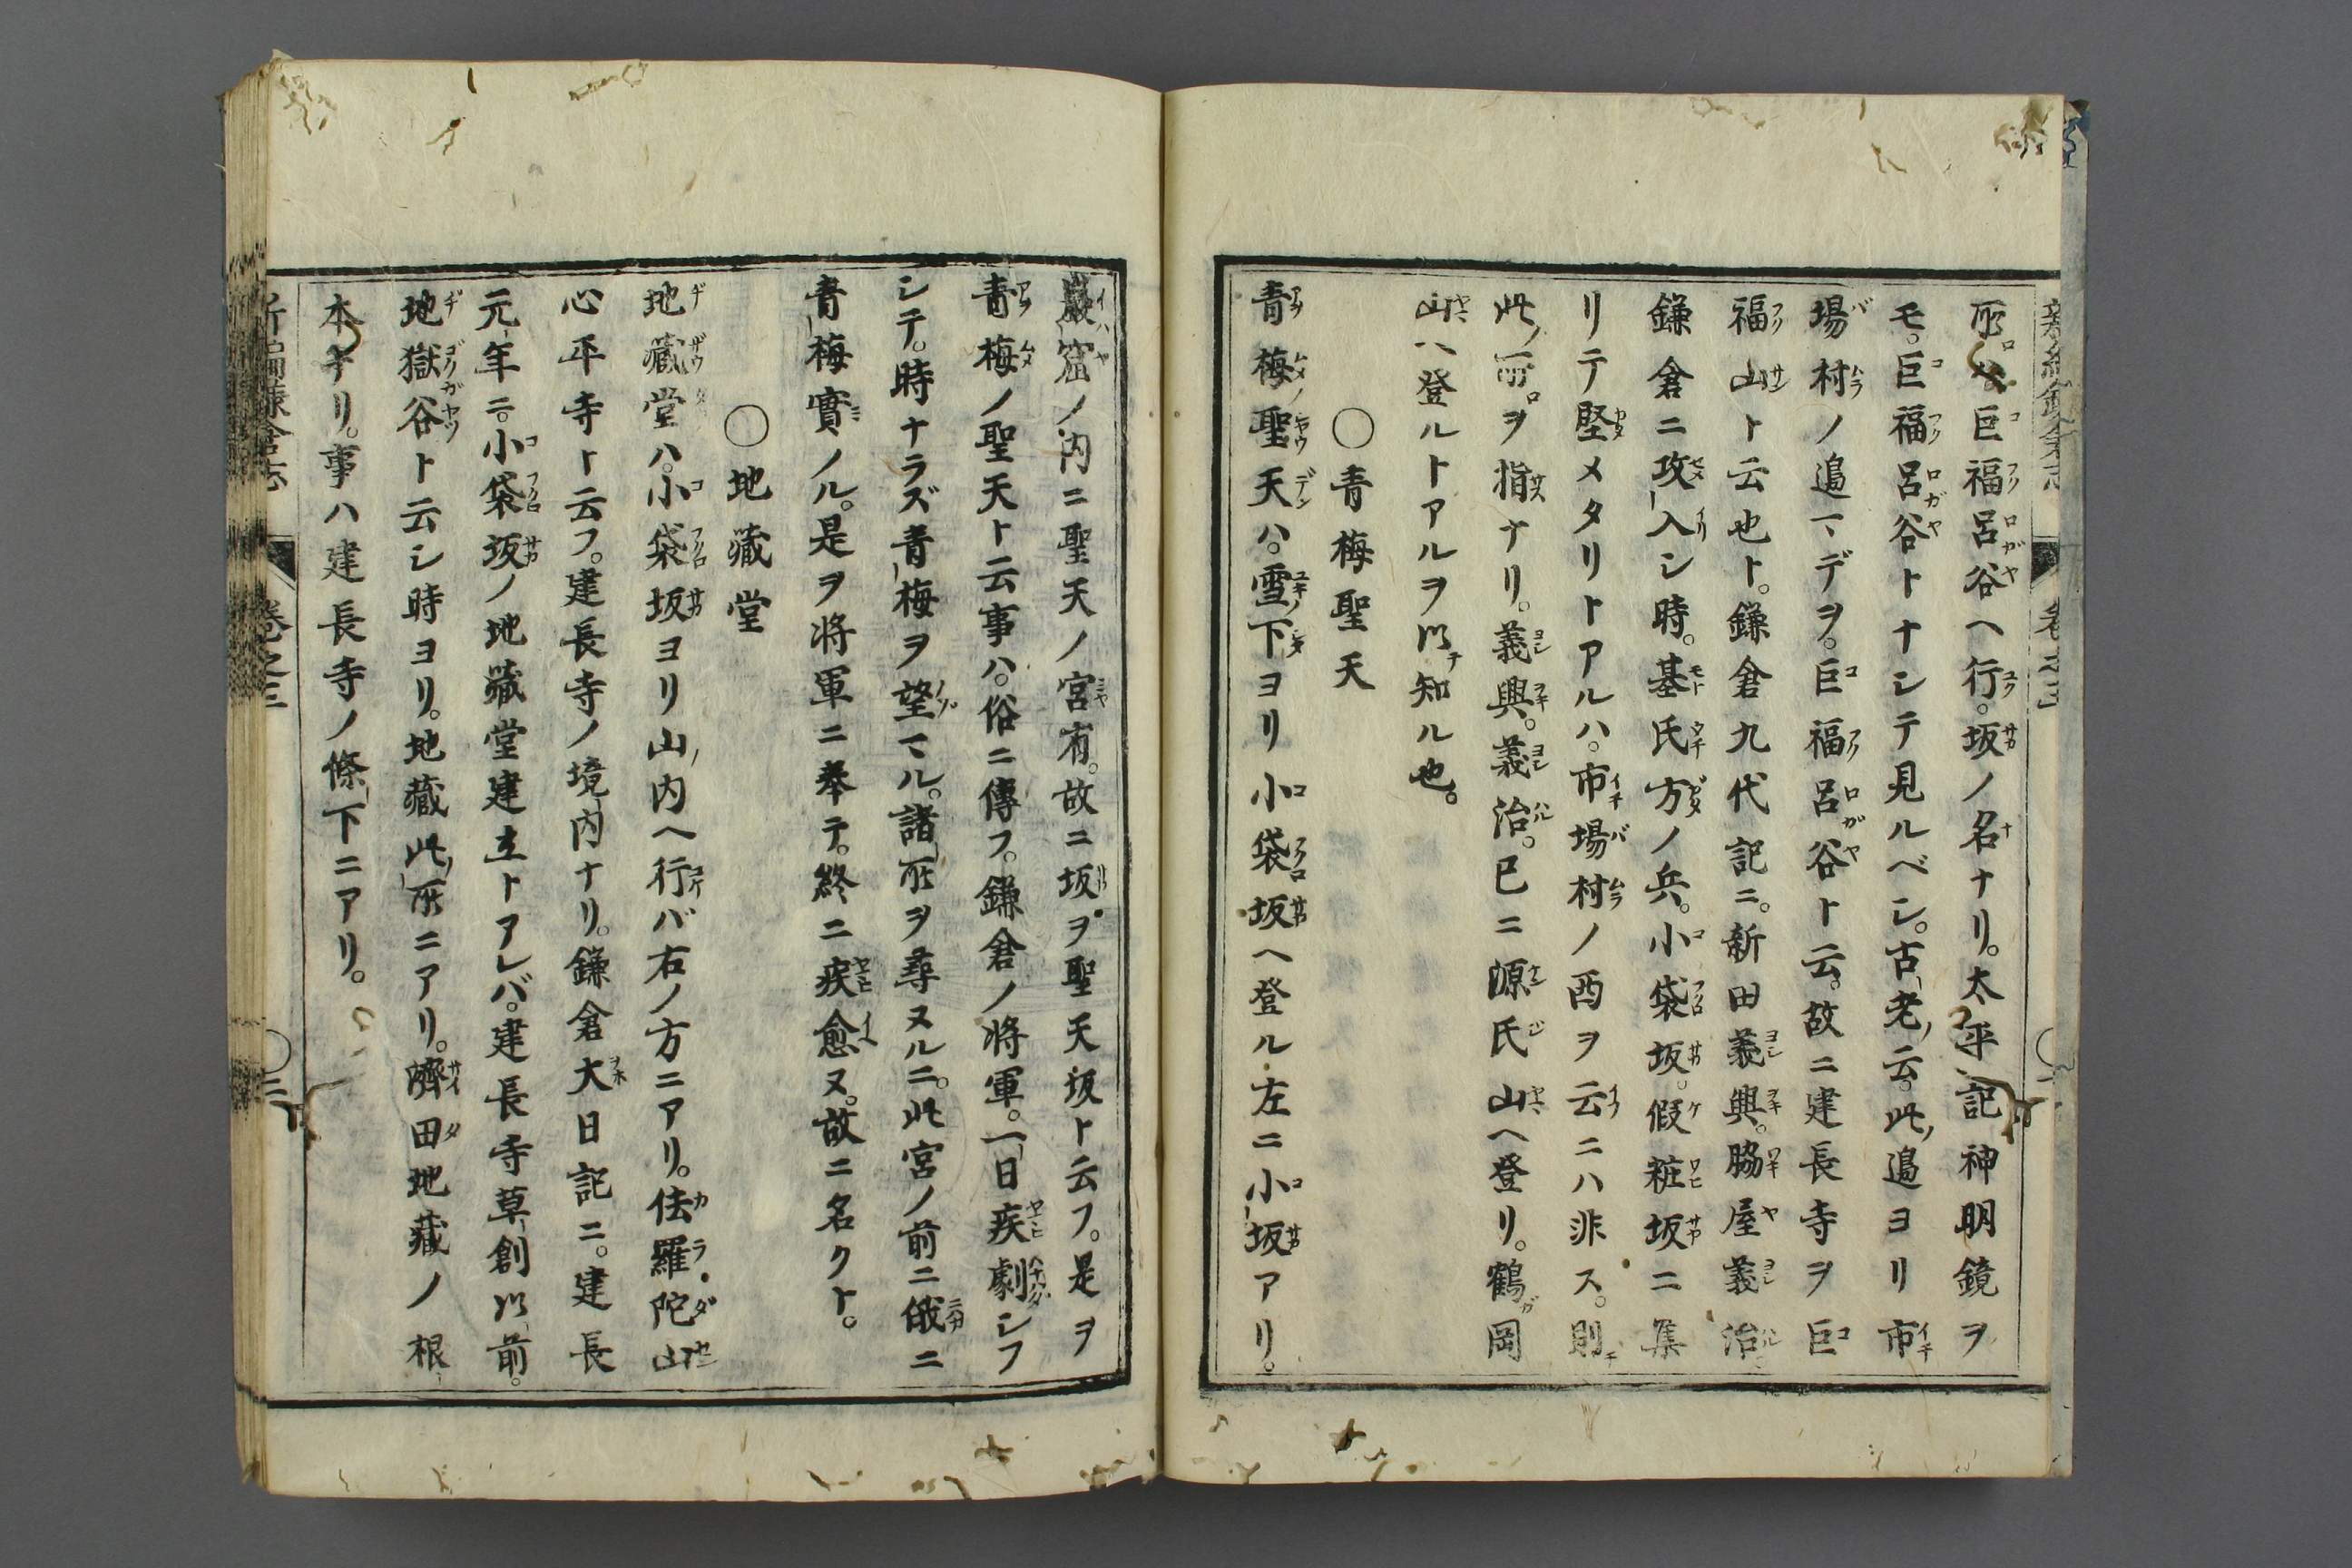 巨福呂谷ヘ行。坂ノ名ナリ。太平記神明鏡ヲ
モ。巨福呂谷トナシテ見ルベシ。古老云。此邉ヨリ市
場村ノ邉マデヲ。巨福呂谷ト云。故ニ建長寺ヲ巨
福山ト云也ト。鎌倉九代記ニ。新田義興。脇屋義治
鎌倉ニ攻入シ時。基氏方ノ兵。小袋坂。假粧坂ニ集
リテ堅メタリトアルハ。市場村ノ西ヲ云ニハ非ス。則
此所ヲ指ナリ。義興。義治。已ニ源氏山ヘ登リ。鶴岡
山ヘ登ルトアルヲ以知ル也。
〇青梅聖天
青梅聖天ハ。雪下ヨリ小袋坂ヘ登ル左ニ小坂アリ。
巖窟ノ内ニ聖天ノ宮有。故ニ坂ヲ聖天坂ト云フ。是ヲ
青梅ノ聖天ト云事ハ。俗ニ傳フ。鎌倉ノ将軍。一日疾劇シフ
シテ。時ナラズ青梅ヲ望マル。諸所ヲ尋ヌルニ。此宮ノ前ニ俄ニ
青梅實ノル。是ヲ将軍ニ奉テ。終ニ疾愈ヌ。故ニ名クト。
〇地藏堂
地藏堂ハ。小袋坂ヨリ山内ヘ行バ右ノ方ニアリ。佉羅陀山
心平寺ト云フ。建長寺ノ境内ナリ。鎌倉大日記ニ。建長
元年ニ。小袋坂ノ地藏堂建立トアレバ。建長寺草創以前。
地獄谷ト云シ時ヨリ。地藏此所ニアリ。濟田地藏ノ根
本ナリ。事ハ建長寺ノ條下ニアリ。
新編鎌倉志 卷之三 〇三